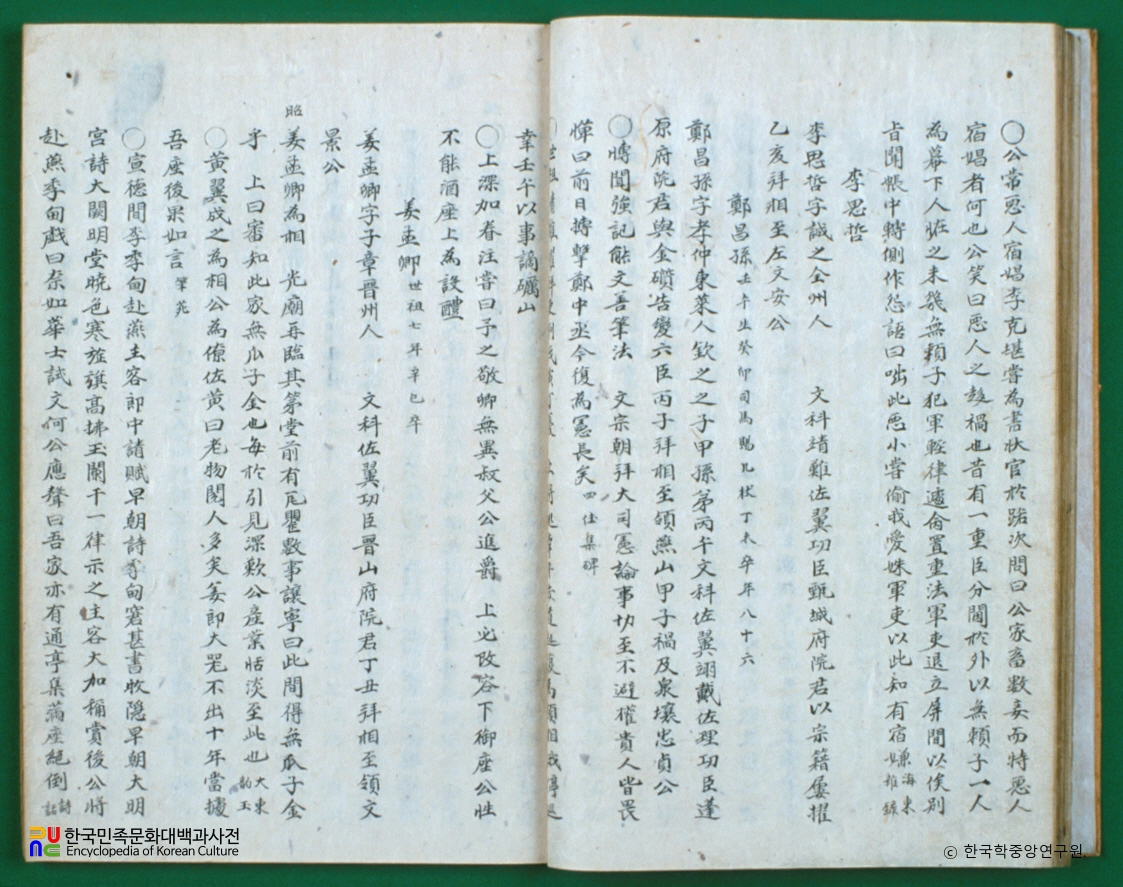 ○公常惡人宿娼李克堪嘗爲書狀官於路次問曰公家畜數妾而特惡人
宿娼者何也公笑曰惡人之效禍也昔有一重臣分閫於外以無賴子一人
爲幕下人砥之未幾無賴子犯軍輕律遽侖置重法軍吏退立屛間以俟別
旨聞帳中轉側作忿語曰咄此惡小嘗偷我愛姝軍吏以此知有宿嫌 海東雜錄
李思哲
李思哲字誠之全州人 文科靖難佐翼功臣甄城府院君以宗籍屢擢
乙亥拜相至左文安公
鄭昌孫 壬午生癸卯司馬賜几杖丁未卒年八十六
鄭昌孫字孝仲東萊人欽之之子甲孫弟丙午文科佐翼翊戴佐理功臣蓬
原府院君與金礩告變六臣丙子拜相至領燕山甲子禍及泉壤忠貞公
○博聞強記能文善筆法 文宗朝拜大司憲論事切至不避權貴人皆畏
憚曰前日搏擊鄭中丞今復爲憲長矣 四佳集碑
幸壬午以事謫礪山
○上深加眷注嘗曰予之敬卿無異叔父公進爵 上必改容下御座公性
不能酒座上爲設醴
姜孟卿 世祖七年辛巳卒
姜孟卿字子章晉州人 文科佐翼功臣晉山府院君丁丑拜相至領文
景公
昭
姜孟卿爲相 光廟再臨其第堂前有瓦甖數事讓寧曰此間得無瓜子金
乎 上曰審知此家無瓜子金也每於引見深歎公産業恬淡至此也 大東韵玉
○黃翼成之爲相公爲僚佐黃曰老物閱人多矣姜郎大器不出十年當據
吾座後果如言 筆苑
○宣德間李季甸赴燕主客郎中請賦早朝詩季甸窘甚書牧隱早朝大明
宮詩大闢明堂曉色寒旌旗高拂玉闌干一律示之主客大加稱賞後公將
赴燕季甸戱曰柰如華士試文何公應聲曰吾家亦有通亭集滿座絕倒 詩話
한국민족문화대백과사전
Encyclopedia of Korean Culture
© 한국학중앙연구원